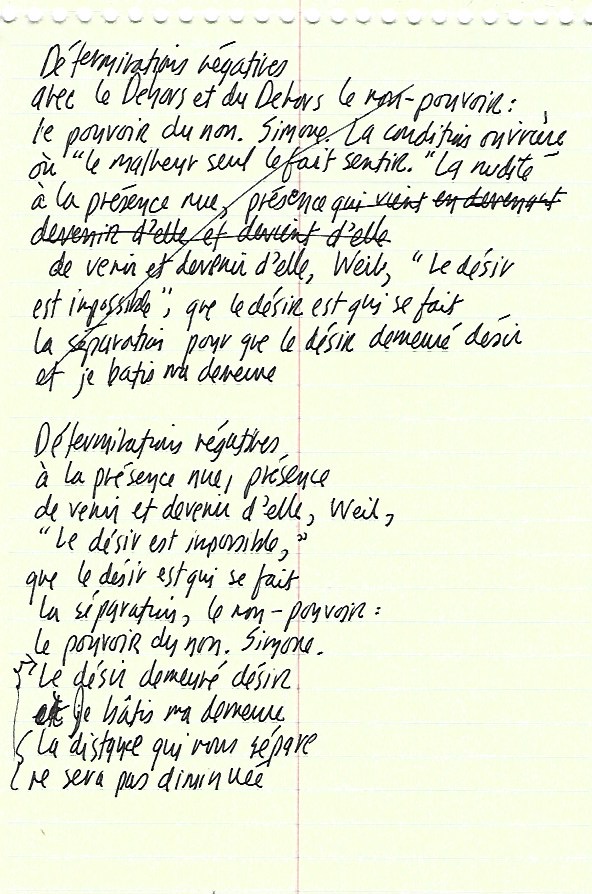 Déterminations négatives
avec le Dehors et du Dehors le non-pouvoir :
le pouvoir du non. Simone. La condition ouvrière
où "le malheur seul le fait sentir. "La nudité
à la présence nue, présence qui vient en devenant
devenir d'elle et devient d'elle
de venir et devenir d'elle, Weil, "Le désir
est impossible", que le désir est qui se fait
la séparation pour que le désir demeuré désir
et je batis ma demeure
Déterminations négatives
à la présence nue, présence
de venir et devenir d'elle, Weil,
"Le désir est impossible,"
que le désir est qui se fait
la séparation, le non-pouvoir :
le pouvoir du non. Simone.
Le désir demeuré désir
et je bâtis ma demeure
La distance qui nous sépare
ne sera pas diminuée